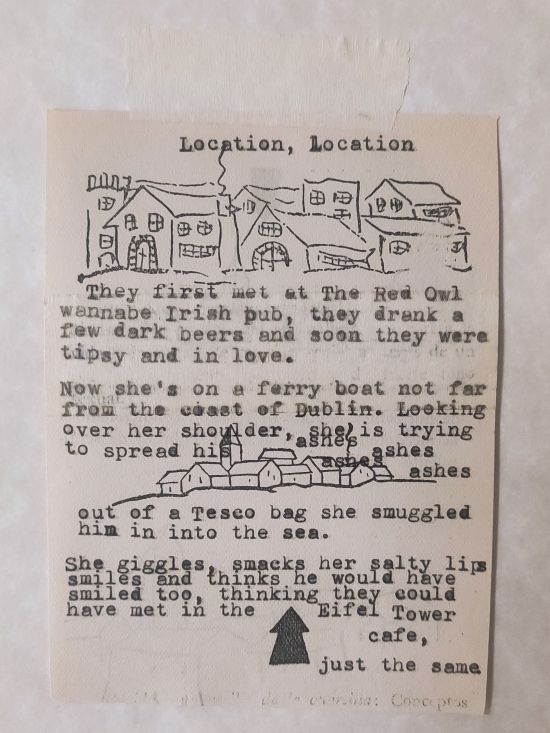 Location, Location
They first met at The Red Owl
wannabe Irish pub, they drank a
few dark beers and soon they were
tipsy and in love.
Now she's on a ferry boat not far
from the coast of Dublin. Looking
over her shoulder, she is trying
to spread his ashes
ashes ashes
ashes
out of a Tesco bag she smuggled
him in into the sea.
She giggles, smacks her salty lips
smiles and thinks he would have
smiled too, thinking they could
have met in the Eifel Tower
cafe,
just the same
Conceptos